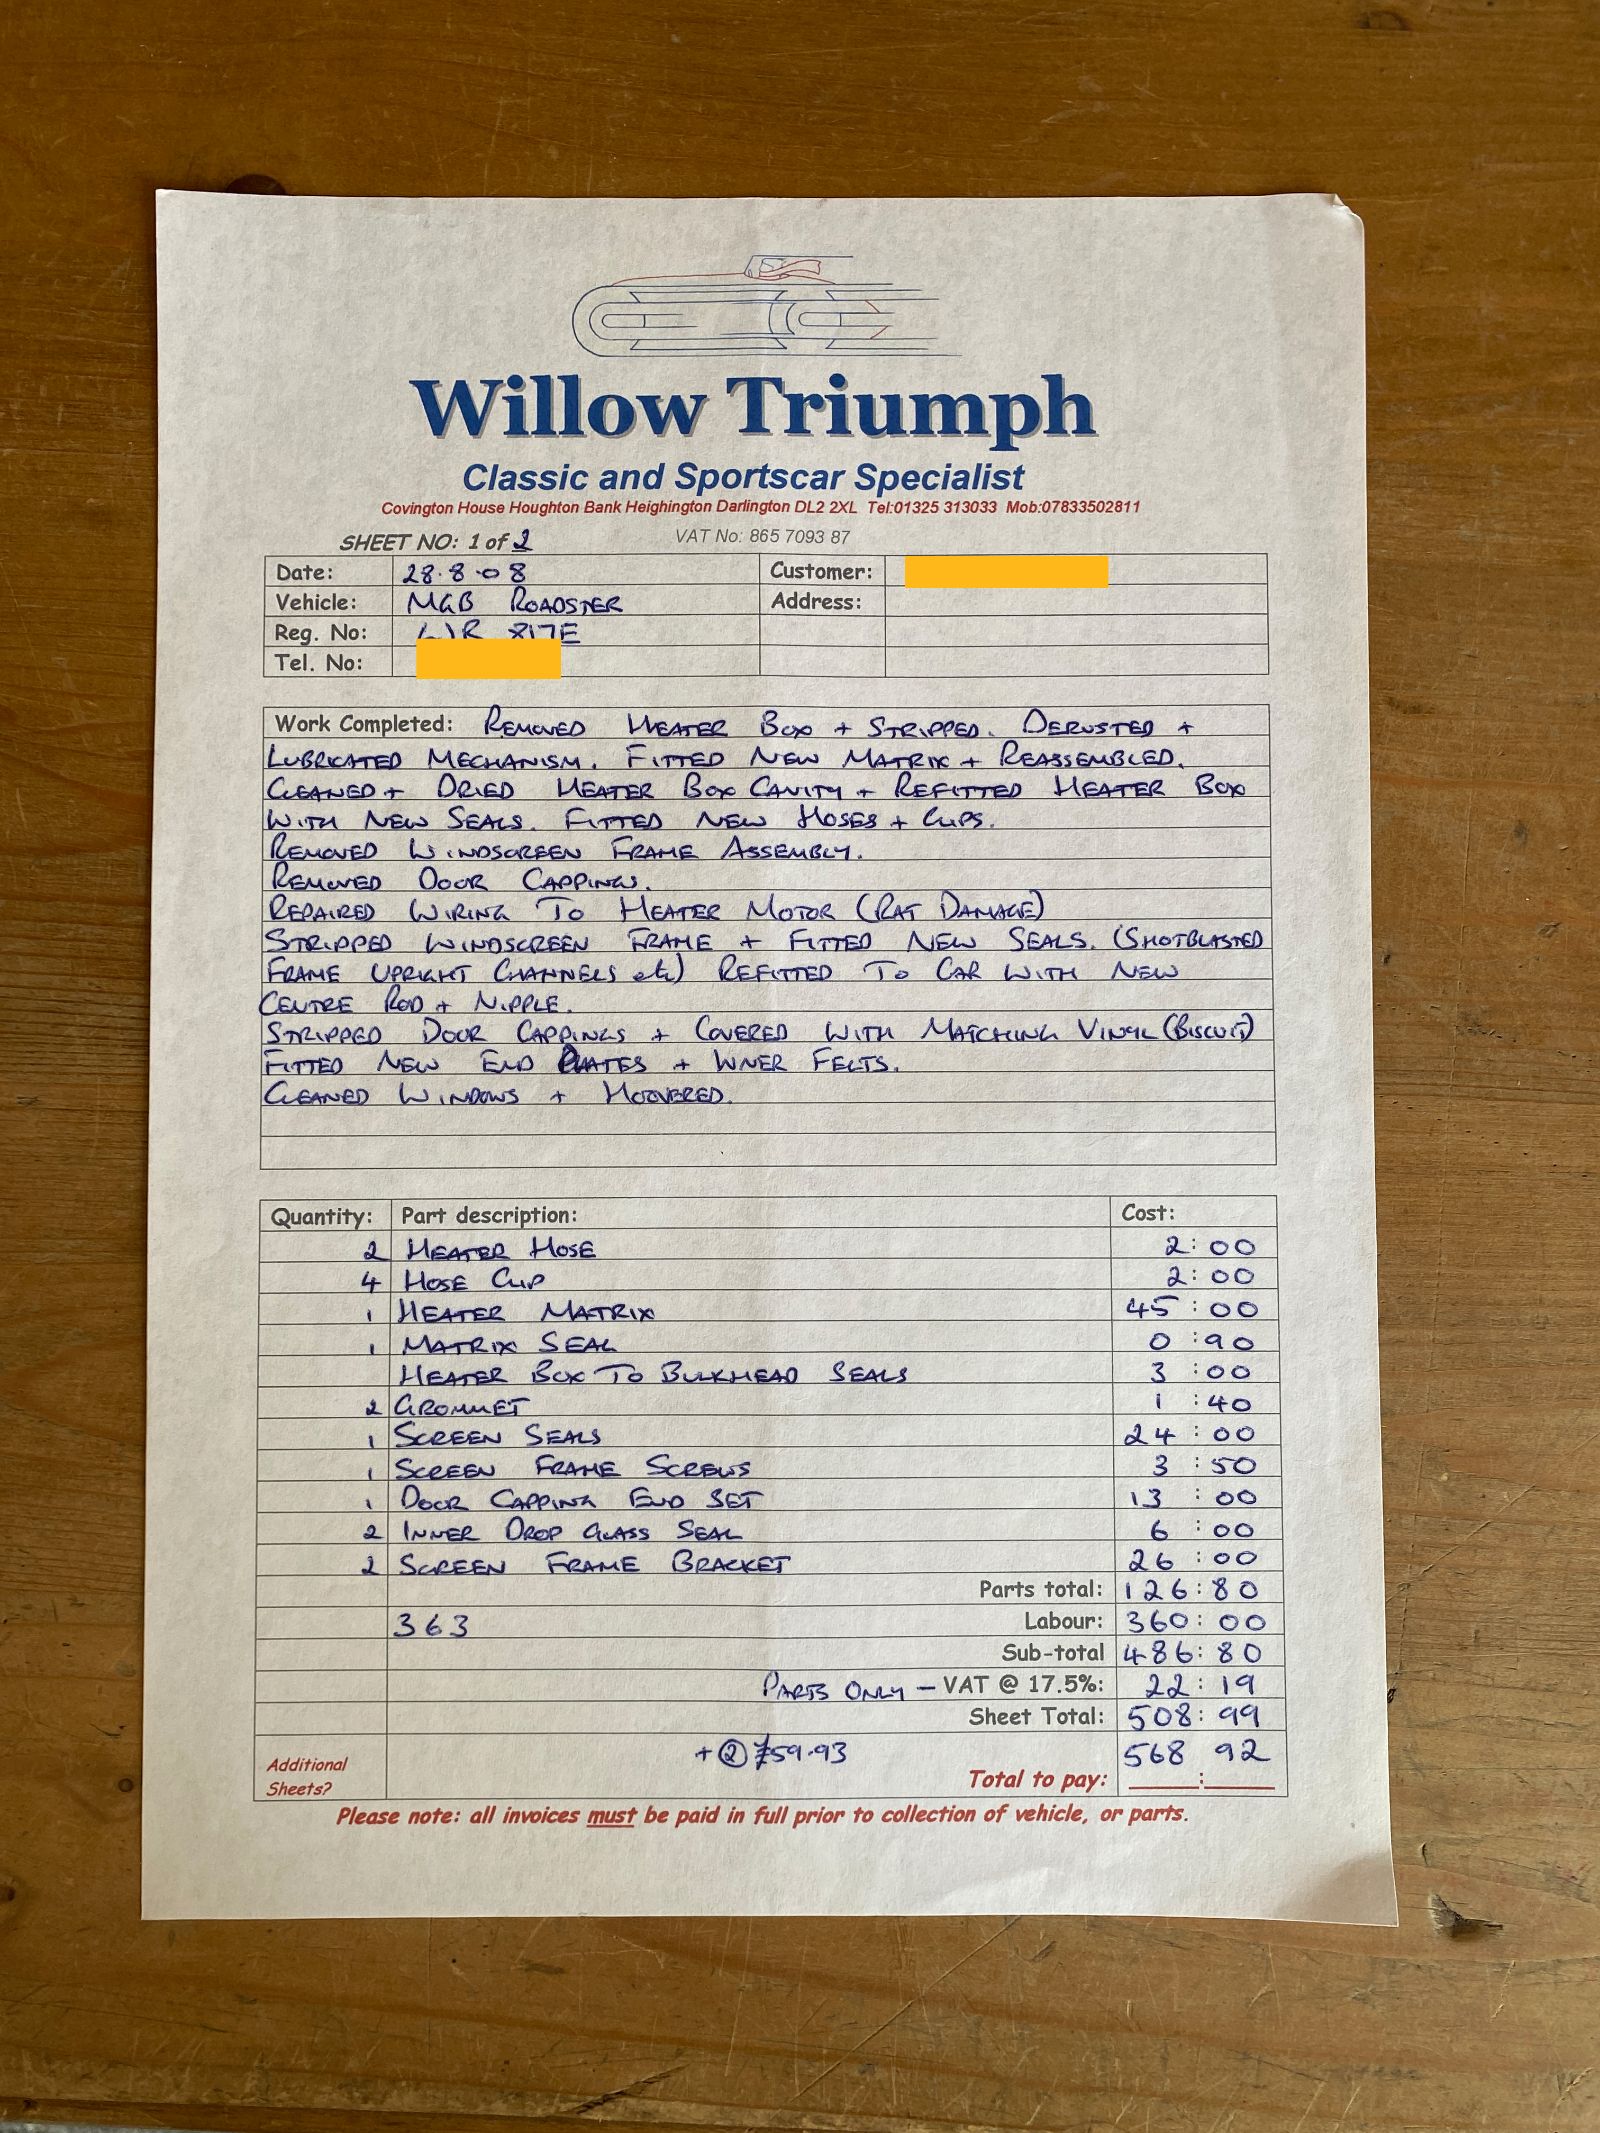 Willow Triumph
Classic and Sportscar Specialist
Covington House Houghton Bank Heighington Darlington DL2 2XL Tel:01325 313033 Mob:07833502811
SHEET NO: 1 of 2 VAT No: 865 7093 87
Date: 28.8.08 Customer:
Vehicle: MGB ROADSTER Address:
Reg. No: 817E
Tel. No:
Work Completed: REMOVED HEATER BOX + STRIPPED. DERUSTED +
LUBRICATED MECHANISM. FITTED NEW MATRIX + REASSEMBLED.
CLEANED + DRIED HEATER BOX CAVITY + REFITTED HEATER BOX
WITH NEW SEALS. FITTED NEW HOSES + CLIPS.
REMOVED WINDSCREEN FRAME ASSEMBLY.
REMOVED DOOR CAPPINGS.
REPAIRED WIRING TO HEATER MOTOR (RAT DAMAGE)
STRIPPED WINDSCREEN FRAME + FITTED NEW SEALS. (SHOTBLASTED
FRAME UPRIGHT CHANNELS etc) REFITTED TO CAR WITH NEW
CENTRE ROD + NIPPLE.
STRIPPED DOOR CAPPINGS + COVERED WITH MATCHING VINYL (BISCUIT)
FITTED NEW END PLATES + INNER FELTS.
CLEANED WINDOWS + HOOVERED.
Quantity: Part description: Cost:
2 HEATER HOSE 2:00
4 HOSE CLIP 2:00
1 HEATER MATRIX 45:00
1 MATRIX SEAL 0:90
HEATER BOX TO BULKHEAD SEALS 3:00
2 GROMMET 1:40
1 SCREEN SEALS 24:00
1 SCREEN FRAME SCREWS 3:50
1 DOOR CAPPING END SET 13:00
2 INNER DROP GLASS SEAL 6:00
2 SCREEN FRAME BRACKET 26:00
Parts total: 126:80
363 Labour: 360:00
Sub-total 486:80
PARTS ONLY - VAT @ 17.5%: 22:19
Sheet Total: 508:99
+ ② £59.93 568 92
Additional Sheets? Total to pay: ____:____
Please note: all invoices must be paid in full prior to collection of vehicle, or parts.